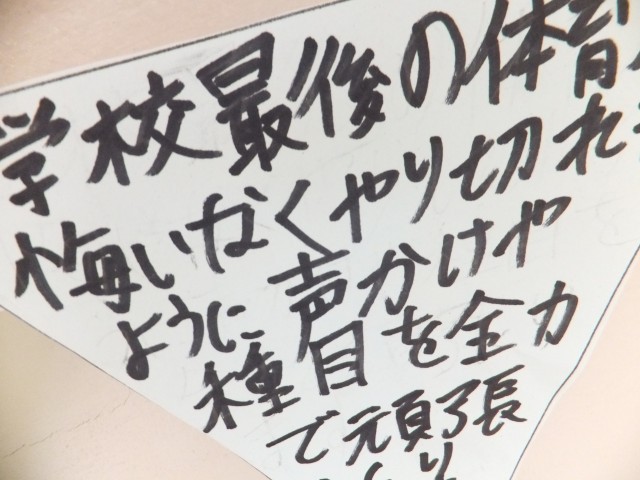 学校最後の体育
悔いなくやり切れ
ように声かけや
種目を全力
で頑張